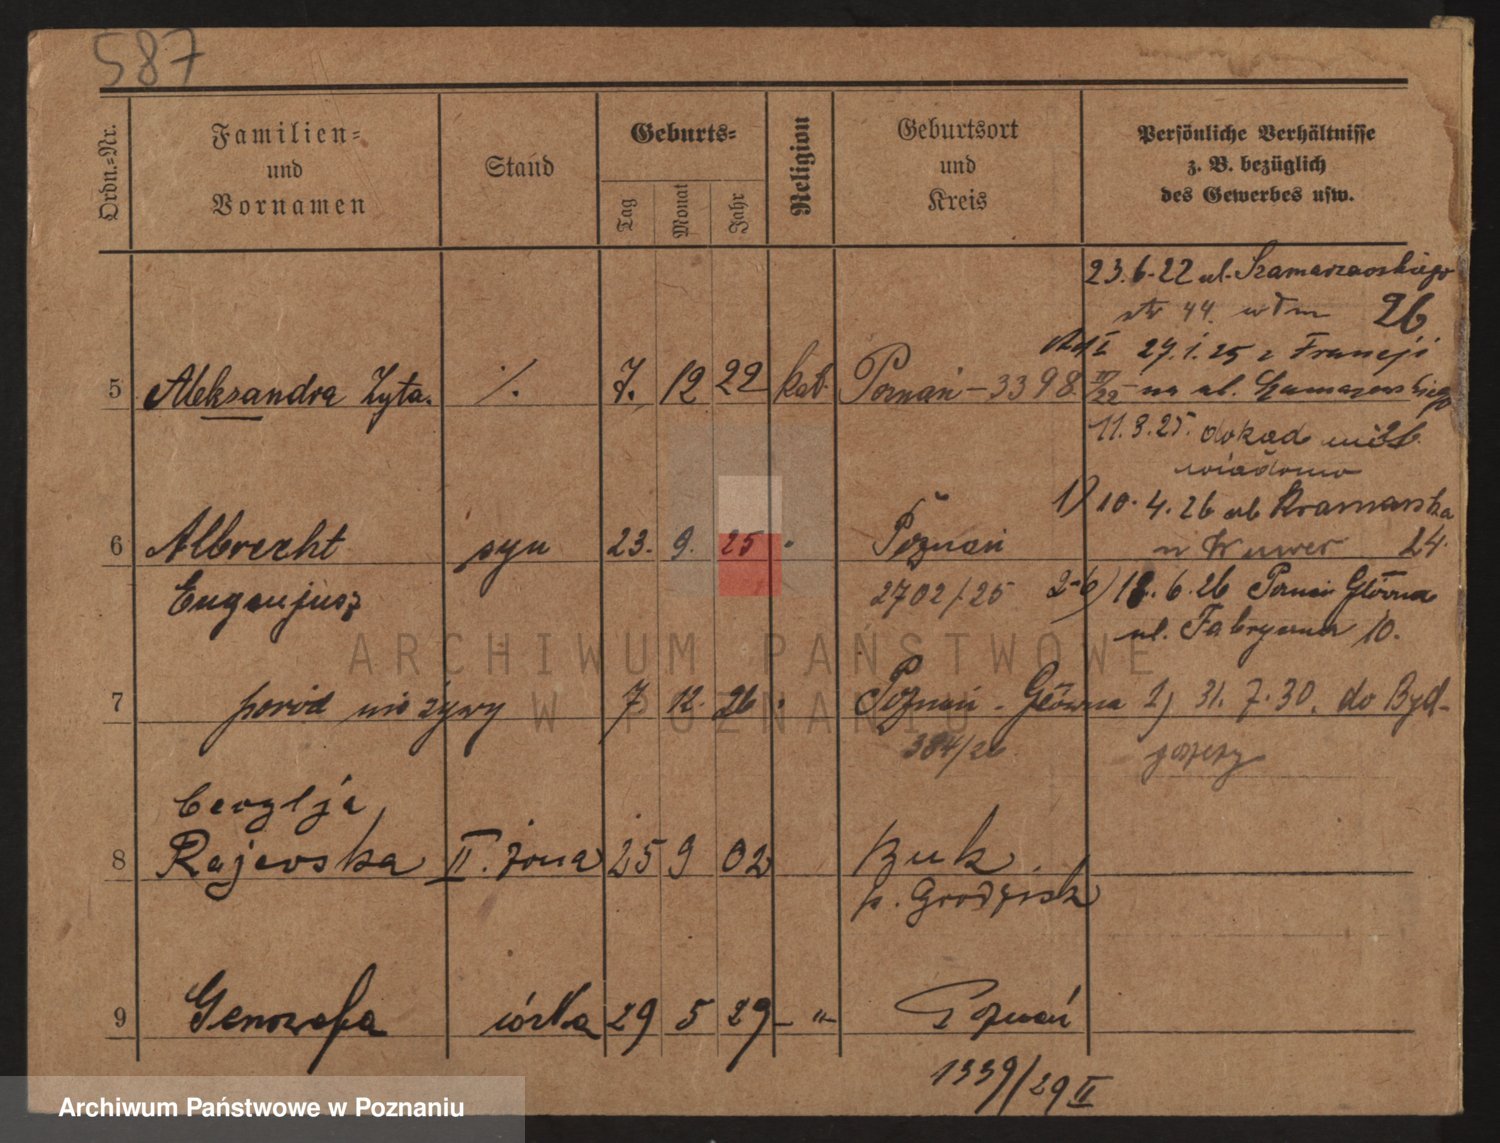 587
Ordn.-Nr.
Familien-
und
Vornamen
Stand
Geburts-
Tag
Monat
Jahr
Religion
Geburtsort
und
Kreis
Persönliche Verhältnisse
z. B. bezüglich
des Gewerbes usw.
23.6.22 ul. Szamarzewskiego
44. 26
27.1.25 z Francji
5 Aleksandra Zyta. 7. 12 22 kat Poznań – 3398 na ul. Szamarzewskiego
11.3.25. dokąd
wiadomo
1) 10.4.26 ul. Kramarska
6 Albrecht syn 23. 9. 25 Poznań 24.
Eugenjusz 2702/25 18.6.26 Poznań Główna
ul. Fabryczna 10.
ARCHIWUM PAŃSTWOWE
W POZNANIU
7 poród nieżywy 7 12. 26 Poznań - Główna 31.7.30. do Byd-
384/26 goszczy
Cecylja
8 Rajewska II. żona 25 9 02 Buk
p. Grodzisk
9 Genowefa córka 29 5 29 – " – Poznań
1339/29 II
Archiwum Państwowe w Poznaniu